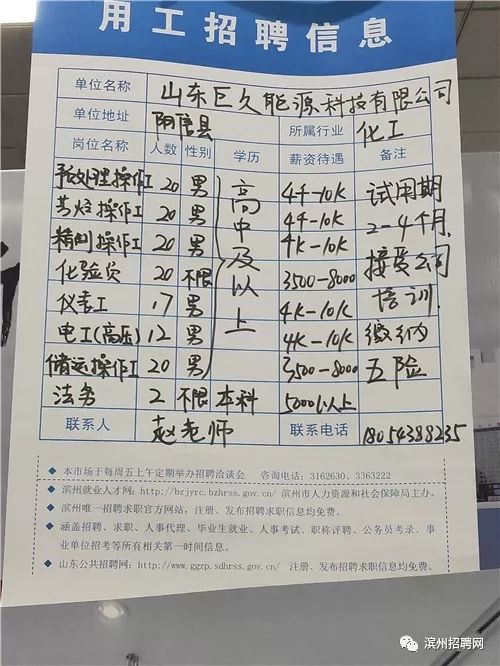 用工招聘信息
单位名称 山东巨久能源科技有限公司
单位地址 阳信县 所属行业 化工
岗位名称 人数 性别 学历 薪资待遇 备注
预处理操作工 20 男 高中及以上 4千-10K 试用期
芳烃操作工 20 男 4千-10K 2-4个月
精制操作工 20 男 4K-10K 接受公司
化验员 20 不限 3500-8000 培训
仪表工 17 男 4K-10K
电工(高压) 12 男 4K-10K 缴纳
储运操作工 20 男 3500-8000 五险
法务 2 不限 本科 5000以上
联系人 赵老师 联系电话 18054388235
◆ 本市场于每周五上午定期举办招聘洽谈会 咨询电话:3162630、3363222
◆ 滨州就业人才网:http://bzjyrc.bzhrss.gov.cn/ 滨州市人力资源和社会保障局主办。
◆ 滨州唯一招聘求职官方网站,注册、发布招聘求职信息均免费。
◆ 涵盖招聘、求职、人事代理、毕业生就业、人事考试、职称评聘、公务员考录、事
业单位招考等所有相关第一时间信息。
◆ 山东公共招聘网:http://www.ggzp.sdhrss.gov.cn/ 注册、发布招聘求职信息均免费。
滨州招聘网